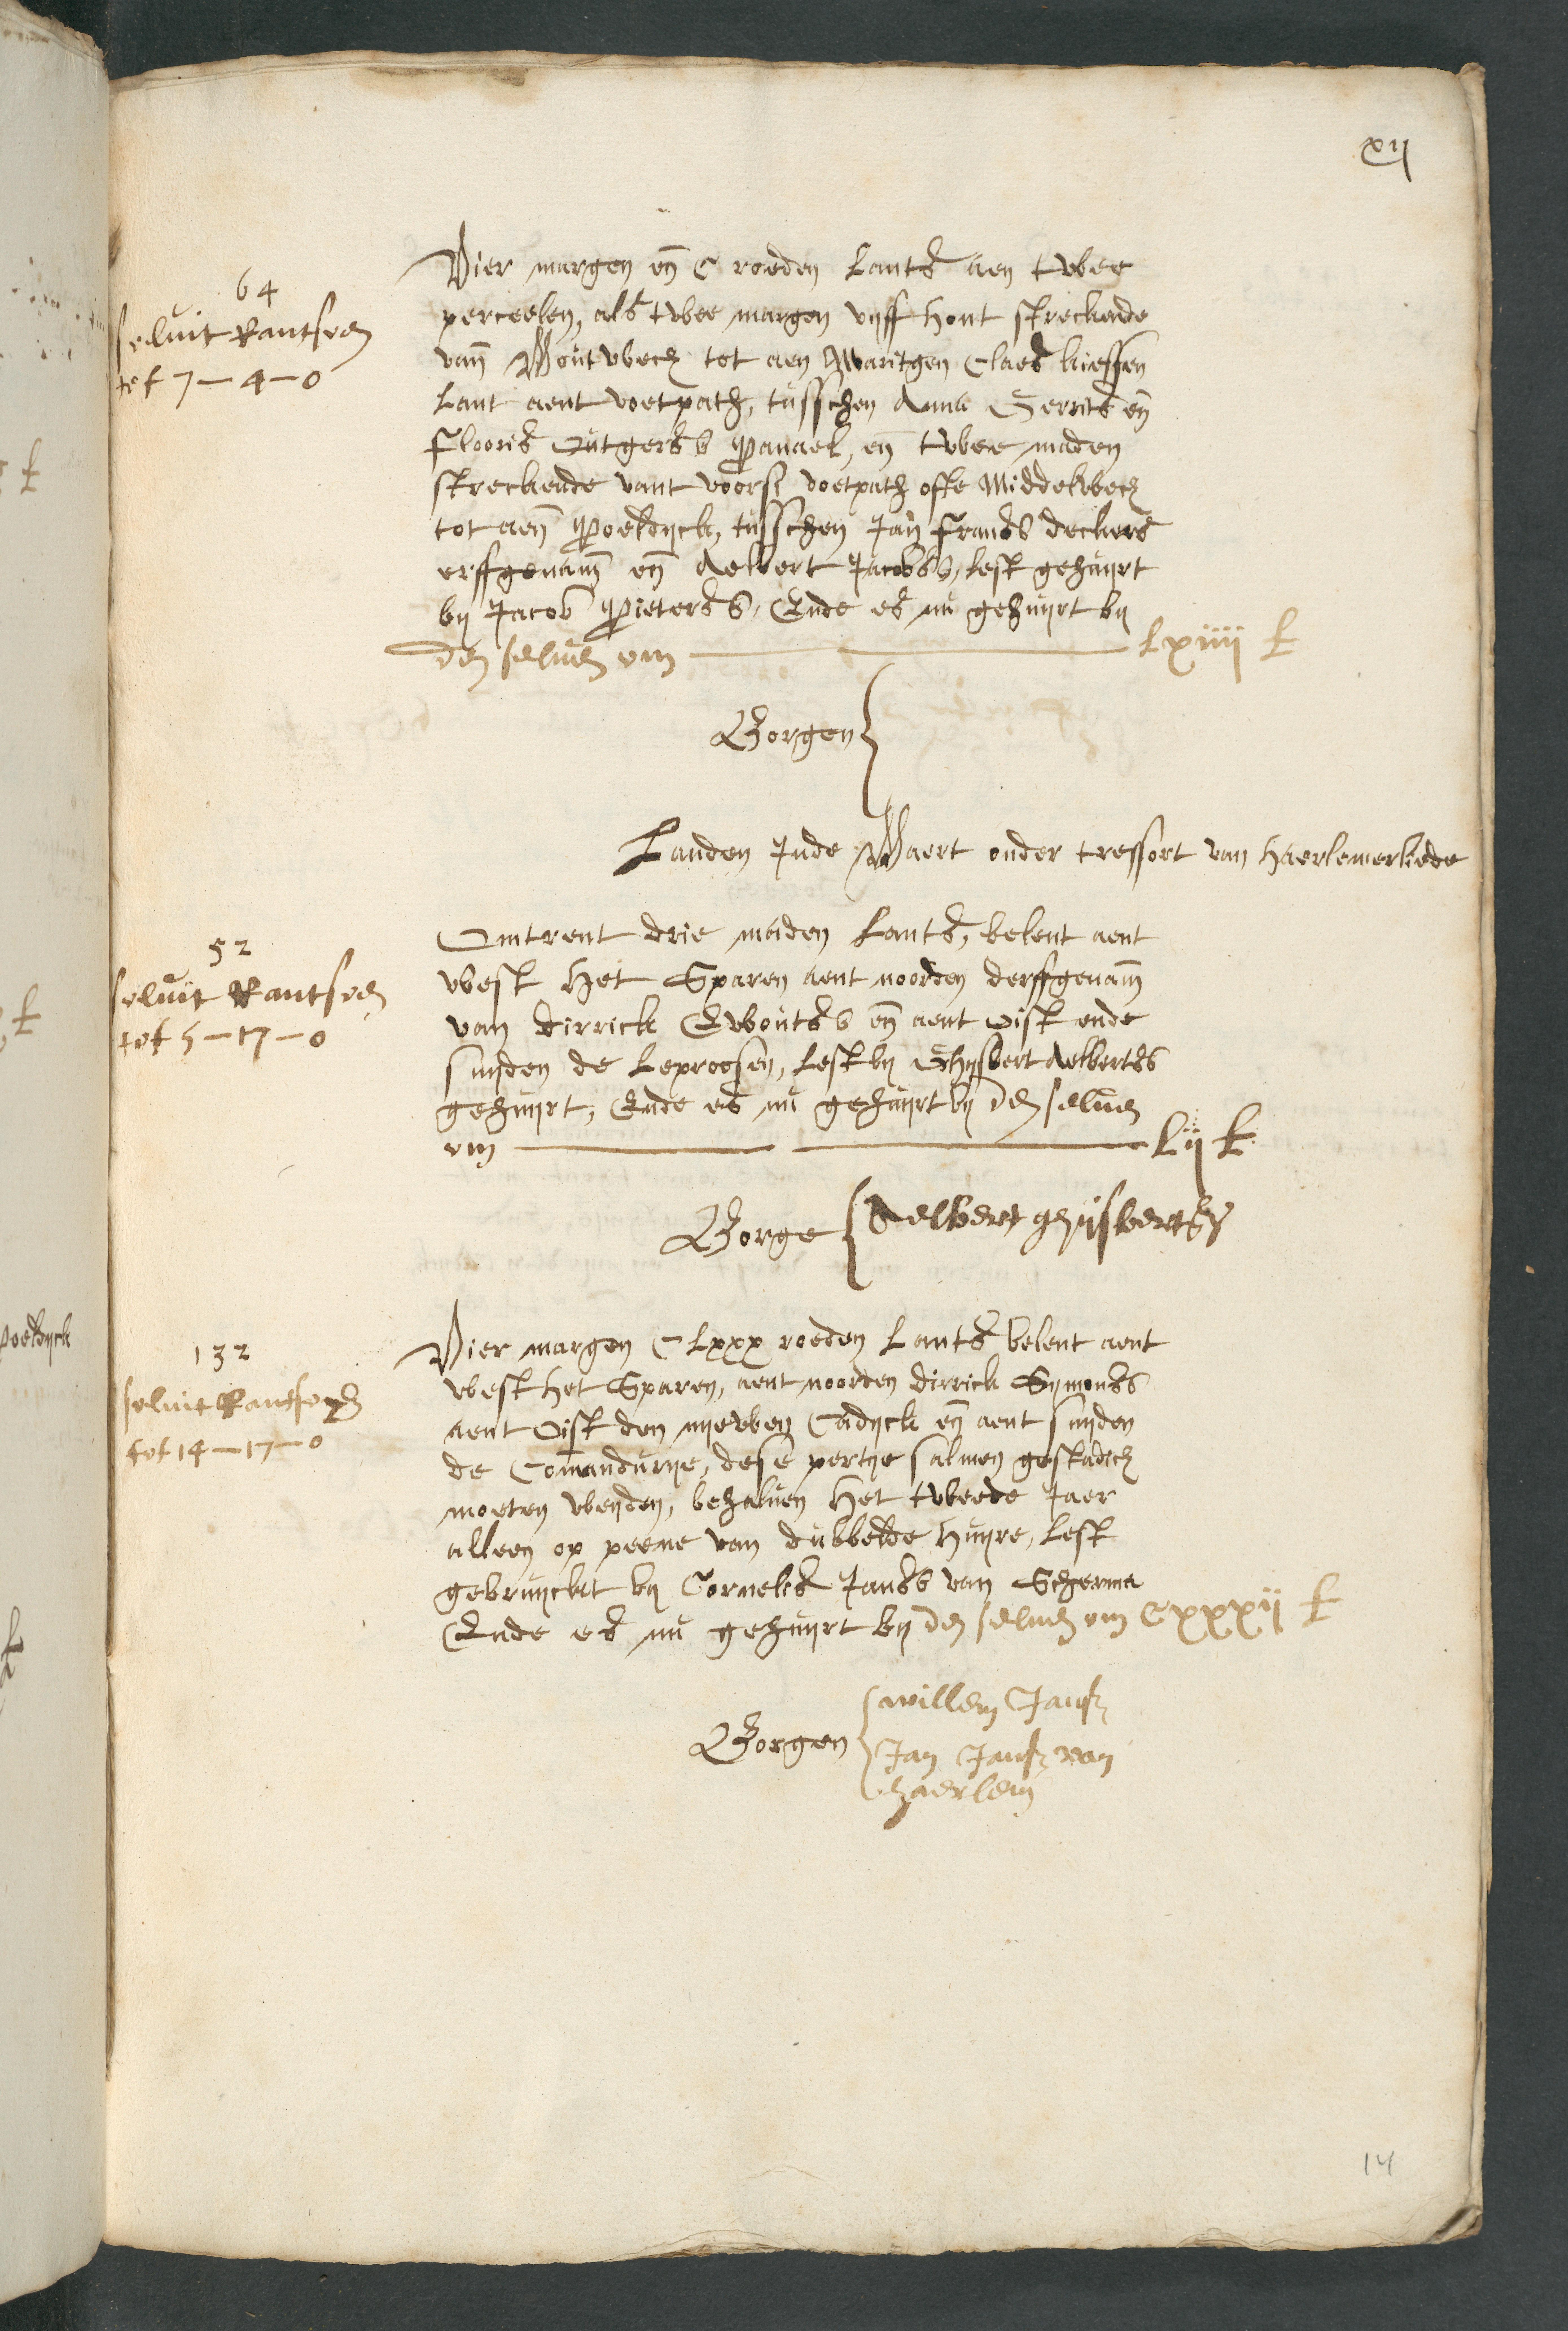 xij
64
seluit Rantsoen
tot 7 - 4 - 0
Vier margen eñ C roeden Lants aen twee
perceelen, als twee margen vijff hont streckende
vañ Woutwech tot aen Maritgen Claes
Lant aent voetpath, tusschen Anna Gerrits eñ
Flooris Outgersz Panael, eñ twee maden
streckende vant voorsz voetpath ofte Middelwech
tot aeñ Poeldijck, tusschen Jan Fransz deckers
erffgenam̃ eñ Aelbert Jacobsz, lest gehuijrt
bij Jacob Pietersz, Ende es nu gehuijrt bij
den seluen om lxiiij £
Borgen
Landen Inde Waert onder tressort van haerlemerliede
52
seluit Rantsoen
tot 5 - 17 - 0
Omtrent drie maden Lants, belent aent
west Het Sparen aent noorden derffgenam̃
van dirrick Ewoutsz eñ aent Oist ende
suijden de Leproosen, Lest bij Ghijsbert Aelbertsz
gehuijrt, Ende es nu gehuijrt bij den seluen
om Lij £
Borge Aelbert ghijsbertsz
132
seluit Rantsoen
tot 14 - 17 - 0
Vier margen C Lxxx roeden Lants belent aent
west het Sparen, aent noorden dirrick Sijmonsz
aent Oist den nijewen Cadijck eñ aent suijden
de Com̃andurije, dese pertije salmen gestadich
moeten weijden, behaluen Het tweede Jaer
alleen op peene van dubbelde huijre, Lest
gebruijckt bij Cornelis Jansz van Scherma
Ende es nu gehuijrt bij den seluen om Cxxxij £
Borgen willem Jansz
Jan Jansz van
haerlem
14